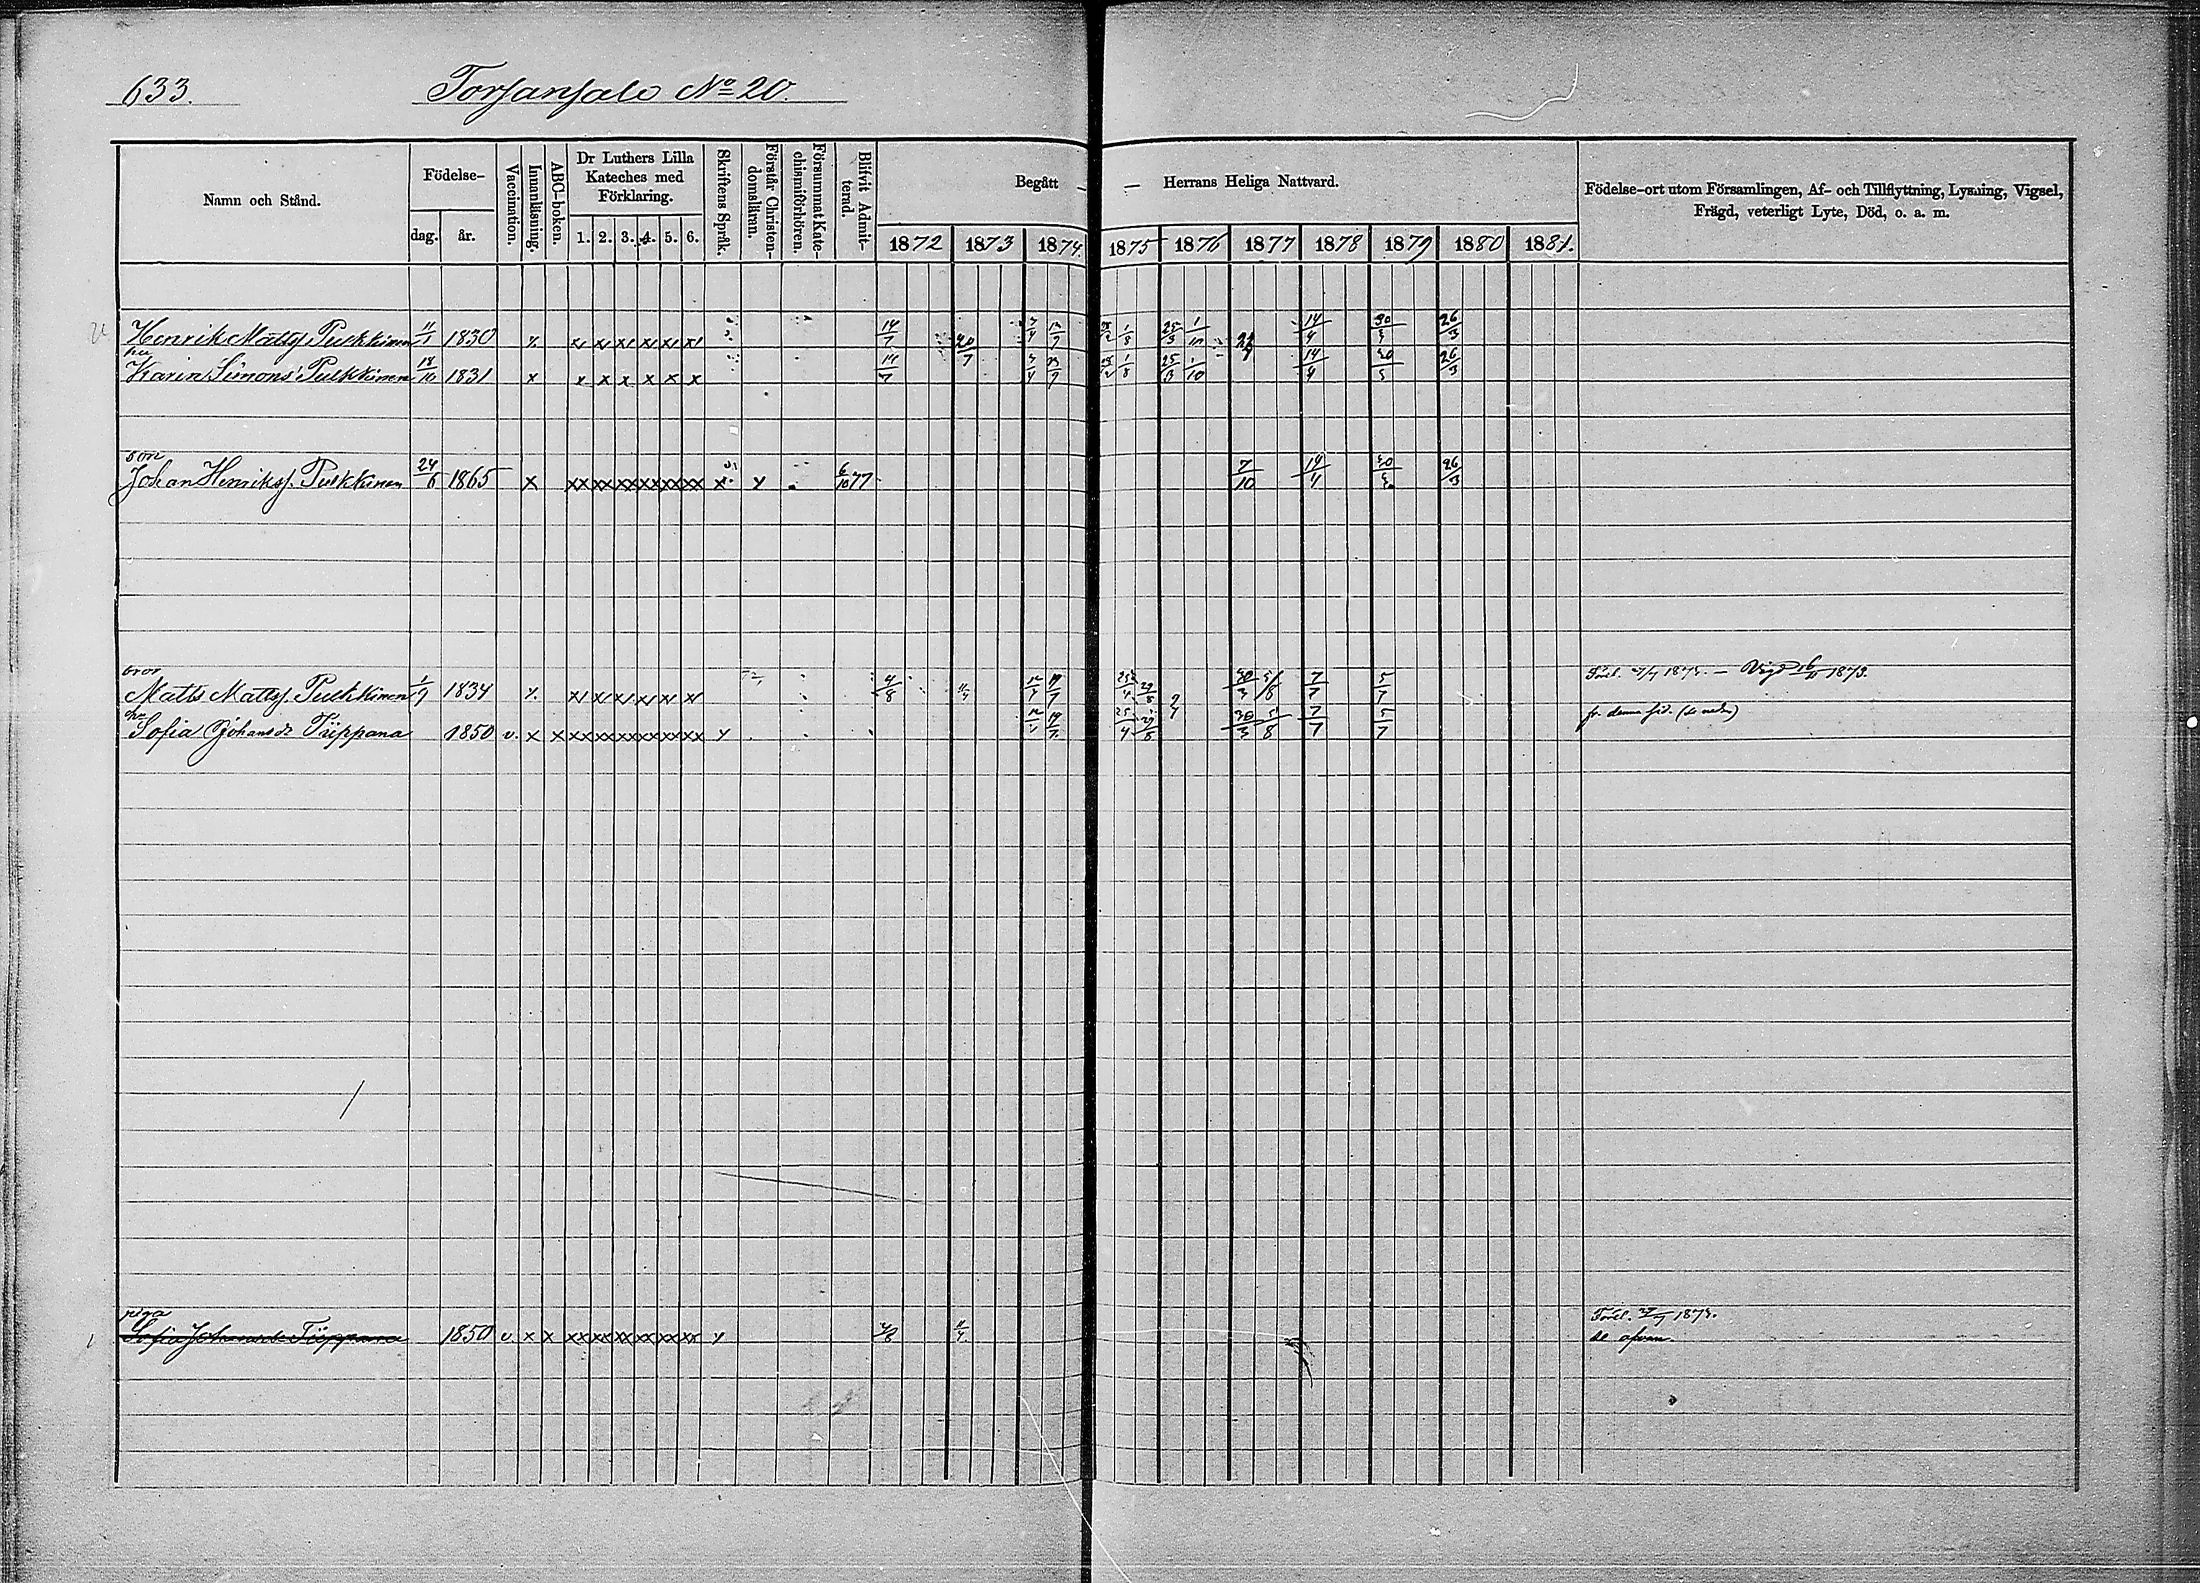 633. Torsansalo No 20.
Namn och Stånd. Födelse- dag. år. Vaccination. Innanläsning. ABC-boken. Dr Luthers Lilla Kateches med Förklaring. 1. 2. 3. 4. 5. 6. Skriftens Språk. Förstår Christendomsläran. Försummat Katechismiförhören. Blifvit Admitterad. Begått — Herrans Heliga Nattvard. 1872 1873 1874. 1875 1876 1877 1878 1879 1880 1881. Födelse-ort utom Församlingen, Af- och Tillflyttning, Lysning, Vigsel, Frägd, veterligt Lyte, Död, o. a. m.
Henrik Mattsf. Pulkkinen 11/1 1830 x x x x x x 14/7 20/7 25/3 1/10 14/4 30/3 26/3
hu
Karin Simonsd. Pulkkinen 18/10 1831 x x x x x x x 14/7 25/3 1/10 14/4 30/3 26/3
son
Johan Henriksf. Pulkkinen 24/6 1865 x xx xx xx xx xx xx x x 6/10 77 7/10 14/4 30/3 26/3
bror
Matts Mattsf. Pulkkinen 1/7 1834 x x x x x x 4/8 25/4 29/8 30/3 5/8 7/7 5/7 1873. — Vigd 16/11 1873.
Sofia Johansdr Tiippana 1850 v. x x xx xx xx xx xx xx x 25/4 29/8 30/3 5/8 7/7 5/7 fr. denna sid. (se nedan)
piga
Sofia Johansdr Tiippana 1850 v. x x xx xx xx xx xx xx x 4/8 1873.
se ofvan.